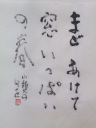 まどあけて
窓いっぱい
の春